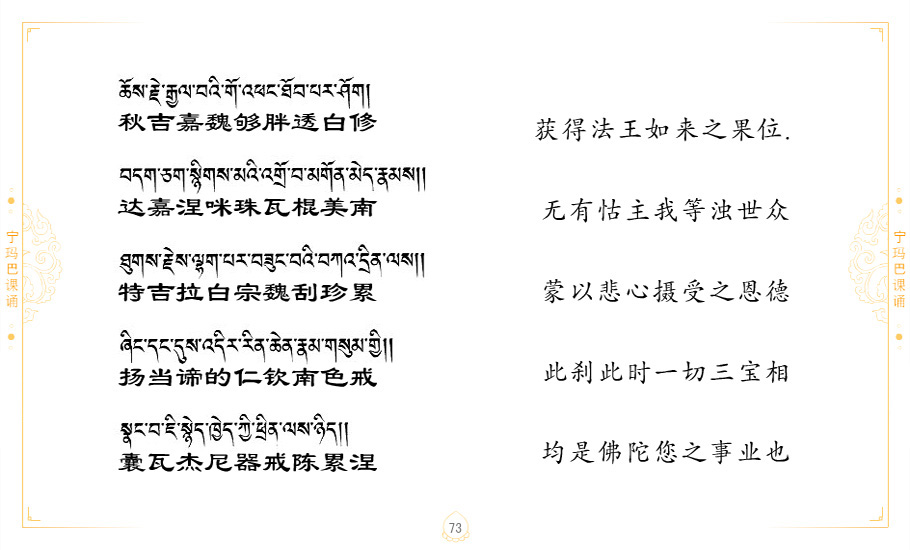 ཆོས་རྗེ་རྒྱལ་བའི་གོ་འཕང་ཐོབ་པར་ཤོག།
秋吉嘉魏够胖透白修
获得法王如来之果位.
བདག་ཅག་སྙིགས་མའི་འགྲོ་བ་མགོན་མེད་རྣམས།།
达嘉涅咪珠瓦棍美南
无有怙主我等浊世众
ཐུགས་རྗེས་ལྷག་པར་བཟུང་བའི་བཀའ་དྲིན་ལས།།
特吉拉白宗魏刮珍累
蒙以悲心摄受之恩德
ཞིང་དང་དུས་འདིར་རིན་ཆེན་རྣམ་གསུམ་གྱི།།
扬当谛的仁钦南色戒
此刹此时一切三宝相
སྣང་བ་ཇི་སྙེད་ཁྱེད་ཀྱི་ཕྲིན་ལས་ཉིད།།
囊瓦杰尼器戒陈累涅
均是佛陀您之事业也
宁玛巴课诵
宁玛巴课诵
73